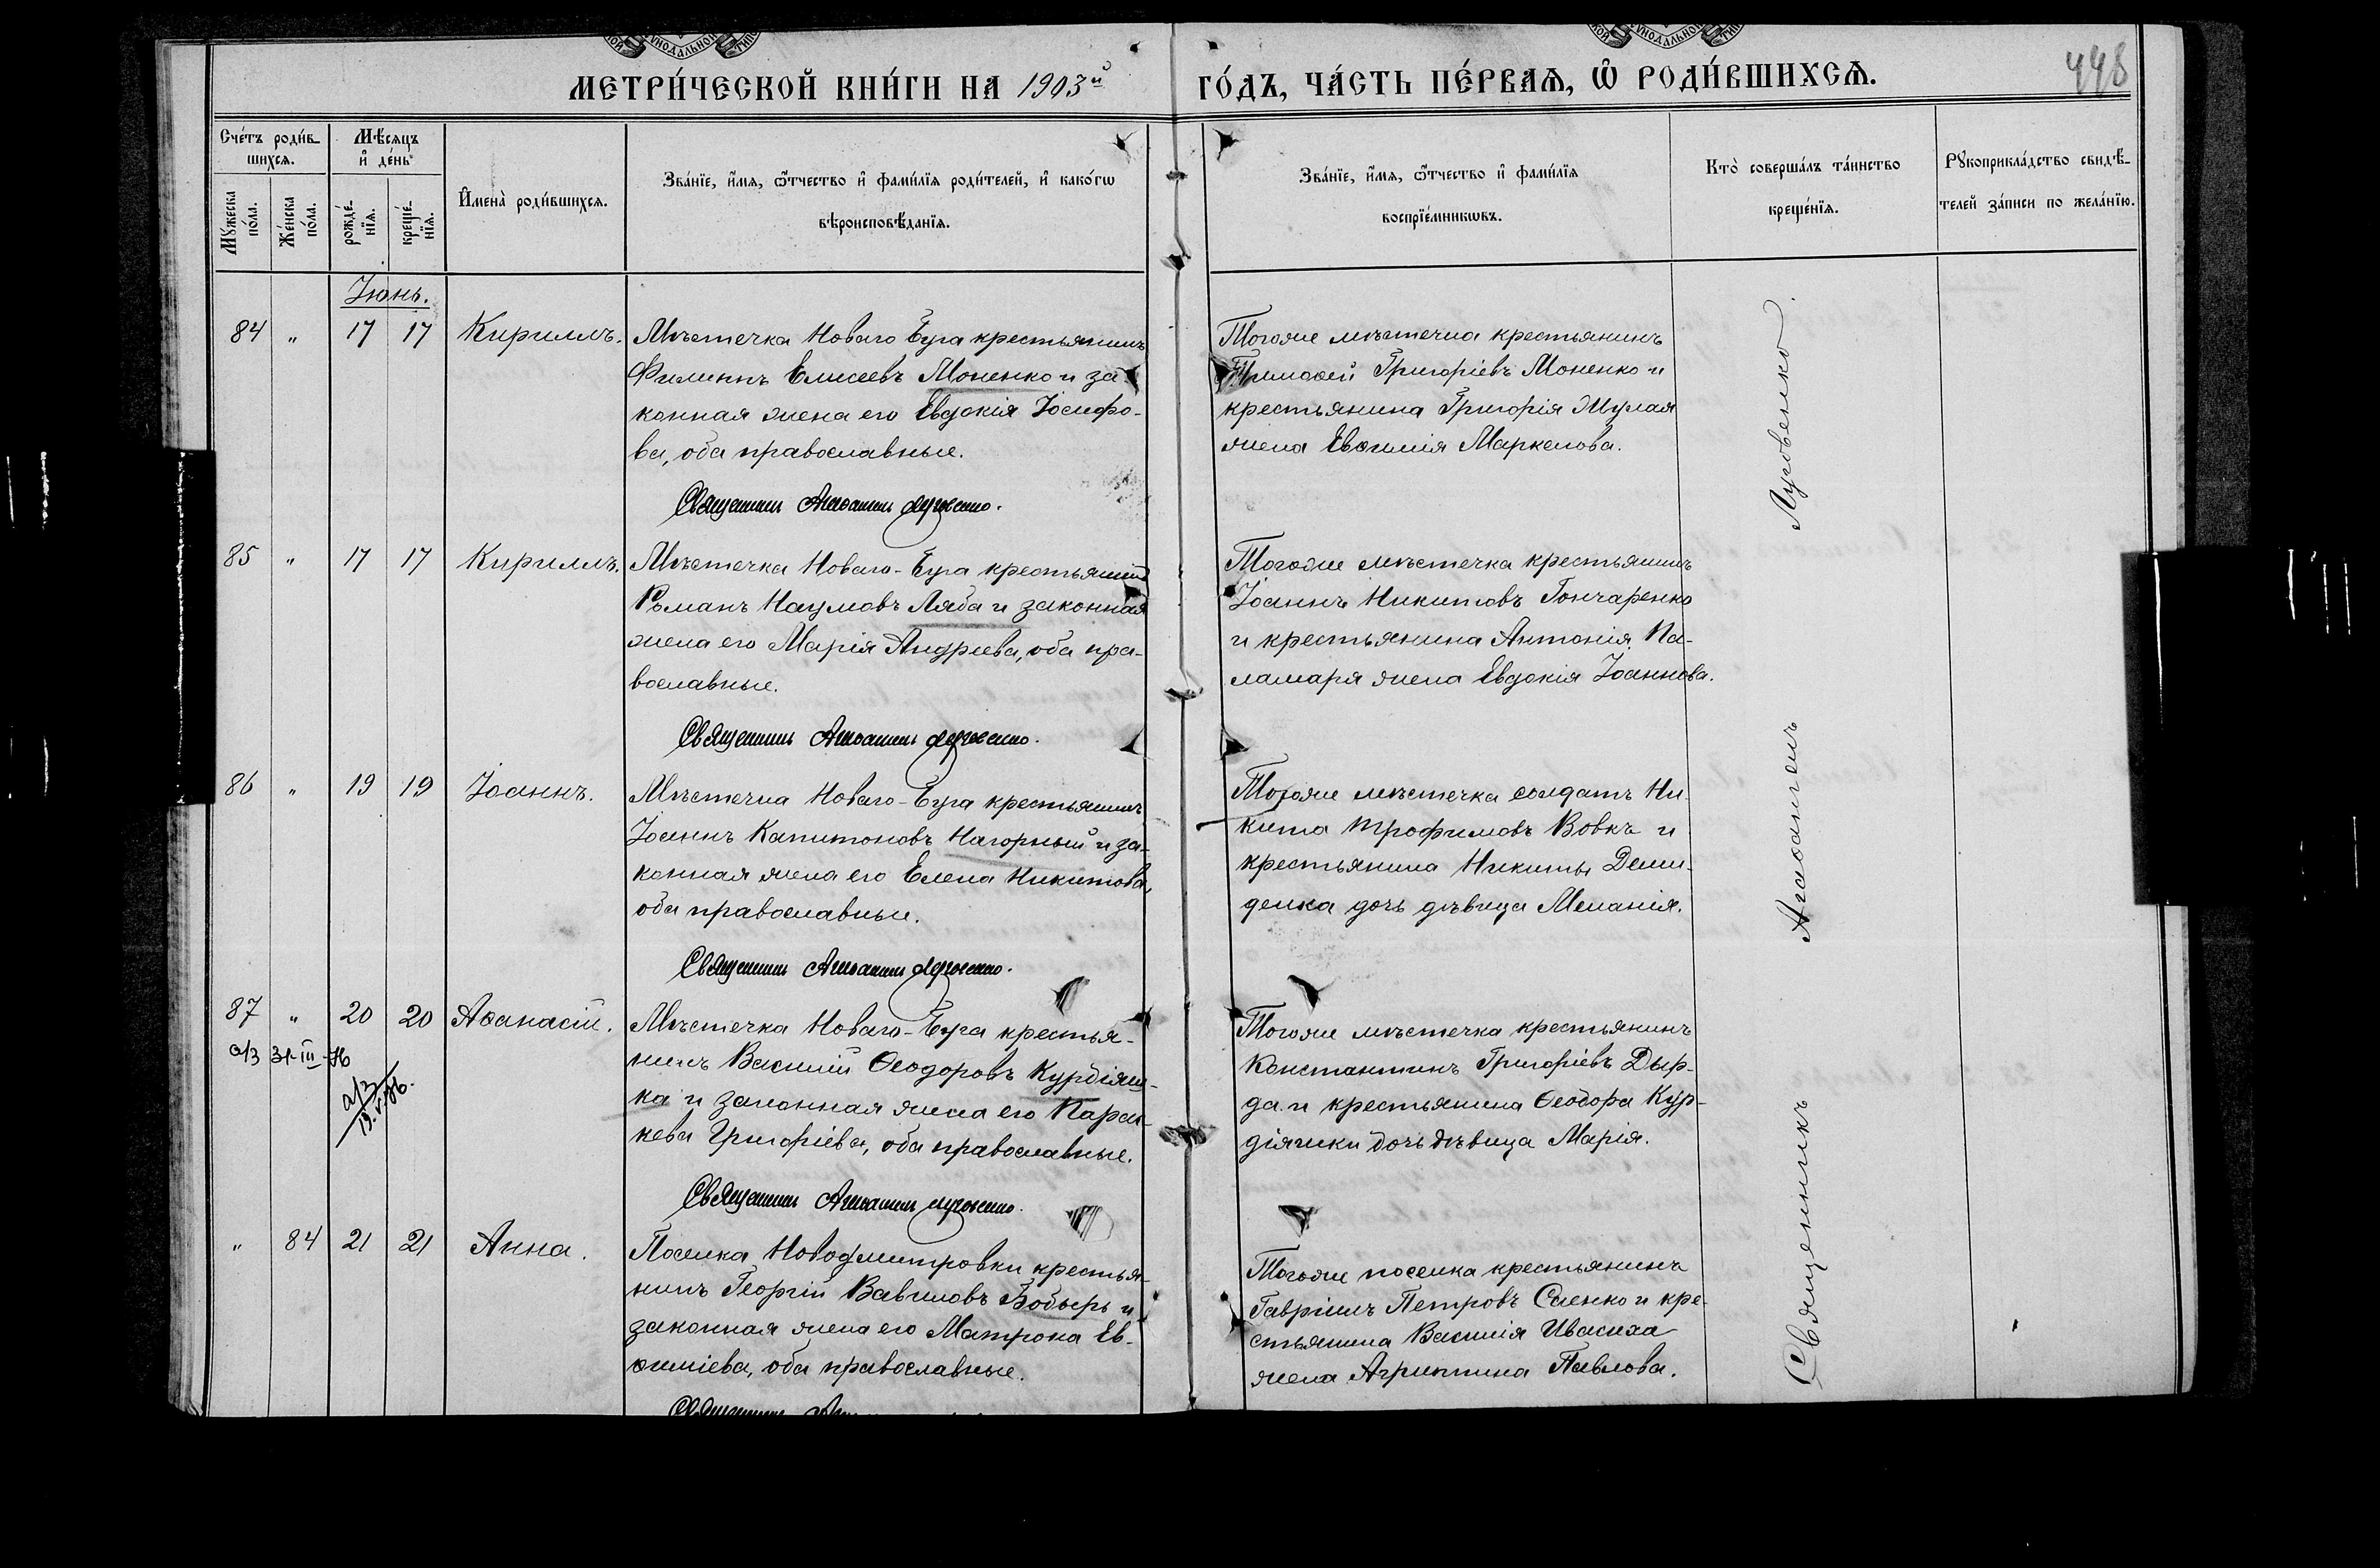 МЕТРИ́ЧЕСКОЙ КНИ́ГИ НА 1903й ГО́ДЪ, ЧА́СТЬ ПЕ́РВАѦ, Ѡ҆ РОДИ́ВШИХСѦ.
448
Сче́тъ роди́в-
шихсѧ.
Мѣ́сѧцъ
и҆ де́нь
Мꙋ́жеска
по́ла.
Же́нска
по́ла.
рожде́-
нїѧ.
креще́-
нїѧ.
И҆мена̀ роди́вшихсѧ.
Зва́нїе, и҆́мѧ, ѻ҆́тчество и҆ фами́лїѧ роди́телей, и҆ како́гѡ
вѣроисповѣ́данїѧ.
Зва́нїе, и҆́мѧ, ѻ҆́тчество и҆ фами́лїѧ
воспрїе́мникѡвъ.
Кто̀ соверша́лъ та́инство
креще́нїѧ.
Рꙋкоприкла́дство свидѣ́-
телей за́писи по жела́нїю.
Іюнь.
84 " 17 17 Кириллъ.
Мѣстечка Новаго Буга крестьянинъ
Филиппъ Елисеевъ Моненко и за-
конная жена его Евдокія Іосифо-
ва, оба православные.
Священникъ Агаѳангелъ Луговенко.
Тогоже мѣстечка крестьянинъ
Тимоѳей Григоріевъ Моненко и
крестьянина Григорія Жулая
жена Евѳимія Маркелова.
85 " 17 17 Кириллъ.
Мѣстечка Новаго-Буга крестьянинъ
Романъ Наумовъ Ляба и законная
жена его Марія Андреева, оба пра-
вославные.
Священникъ Агаѳангелъ Луговенко.
Тогоже мѣстечка крестьянинъ
Іоаннъ Никитовъ Гончаренко
и крестьянина Антонія Па-
ламаря жена Евдокія Іоаннова.
86 " 19 19 Іоаннъ.
Мѣстечка Новаго-Буга крестьянинъ
Іоаннъ Капитоновъ Нагорный и за-
конная жена его Елена Никитова,
оба православные.
Священникъ Агаѳангелъ Луговенко.
Тогоже мѣстечка солдатъ Ни-
кита Трофимовъ Вовкъ и
крестьянина Никиты Деми-
денка дочь дѣвица Меланія.
87 " 20 20 Аѳанасій.
а/з 31-III-
а/з
Мѣстечка Новаго-Буга крестья-
нинъ Василій Ѳеодоровъ Курдіяш-
ка и законная жена его Парас-
кева Григоріева, оба православные.
Священникъ Агаѳангелъ Луговенко.
Тогоже мѣстечка крестьянинъ
Константинъ Григоріевъ Дыр-
да и крестьянина Ѳеодора Кур-
діяшки дочь дѣвица Марія.
" 84 21 21 Анна.
Поселка Новодмитровки крестья-
нинъ Георгій Вавиловъ Бобырь и
законная жена его Матрона Ев-
ѳиміева, оба православные.
Тогоже поселка крестьянинъ
Гавріилъ Петровъ Саенко и кре-
стьянина Василія Ивасиха
жена Агриппина Павлова.
Священникъ Агаѳангелъ Луговенко.